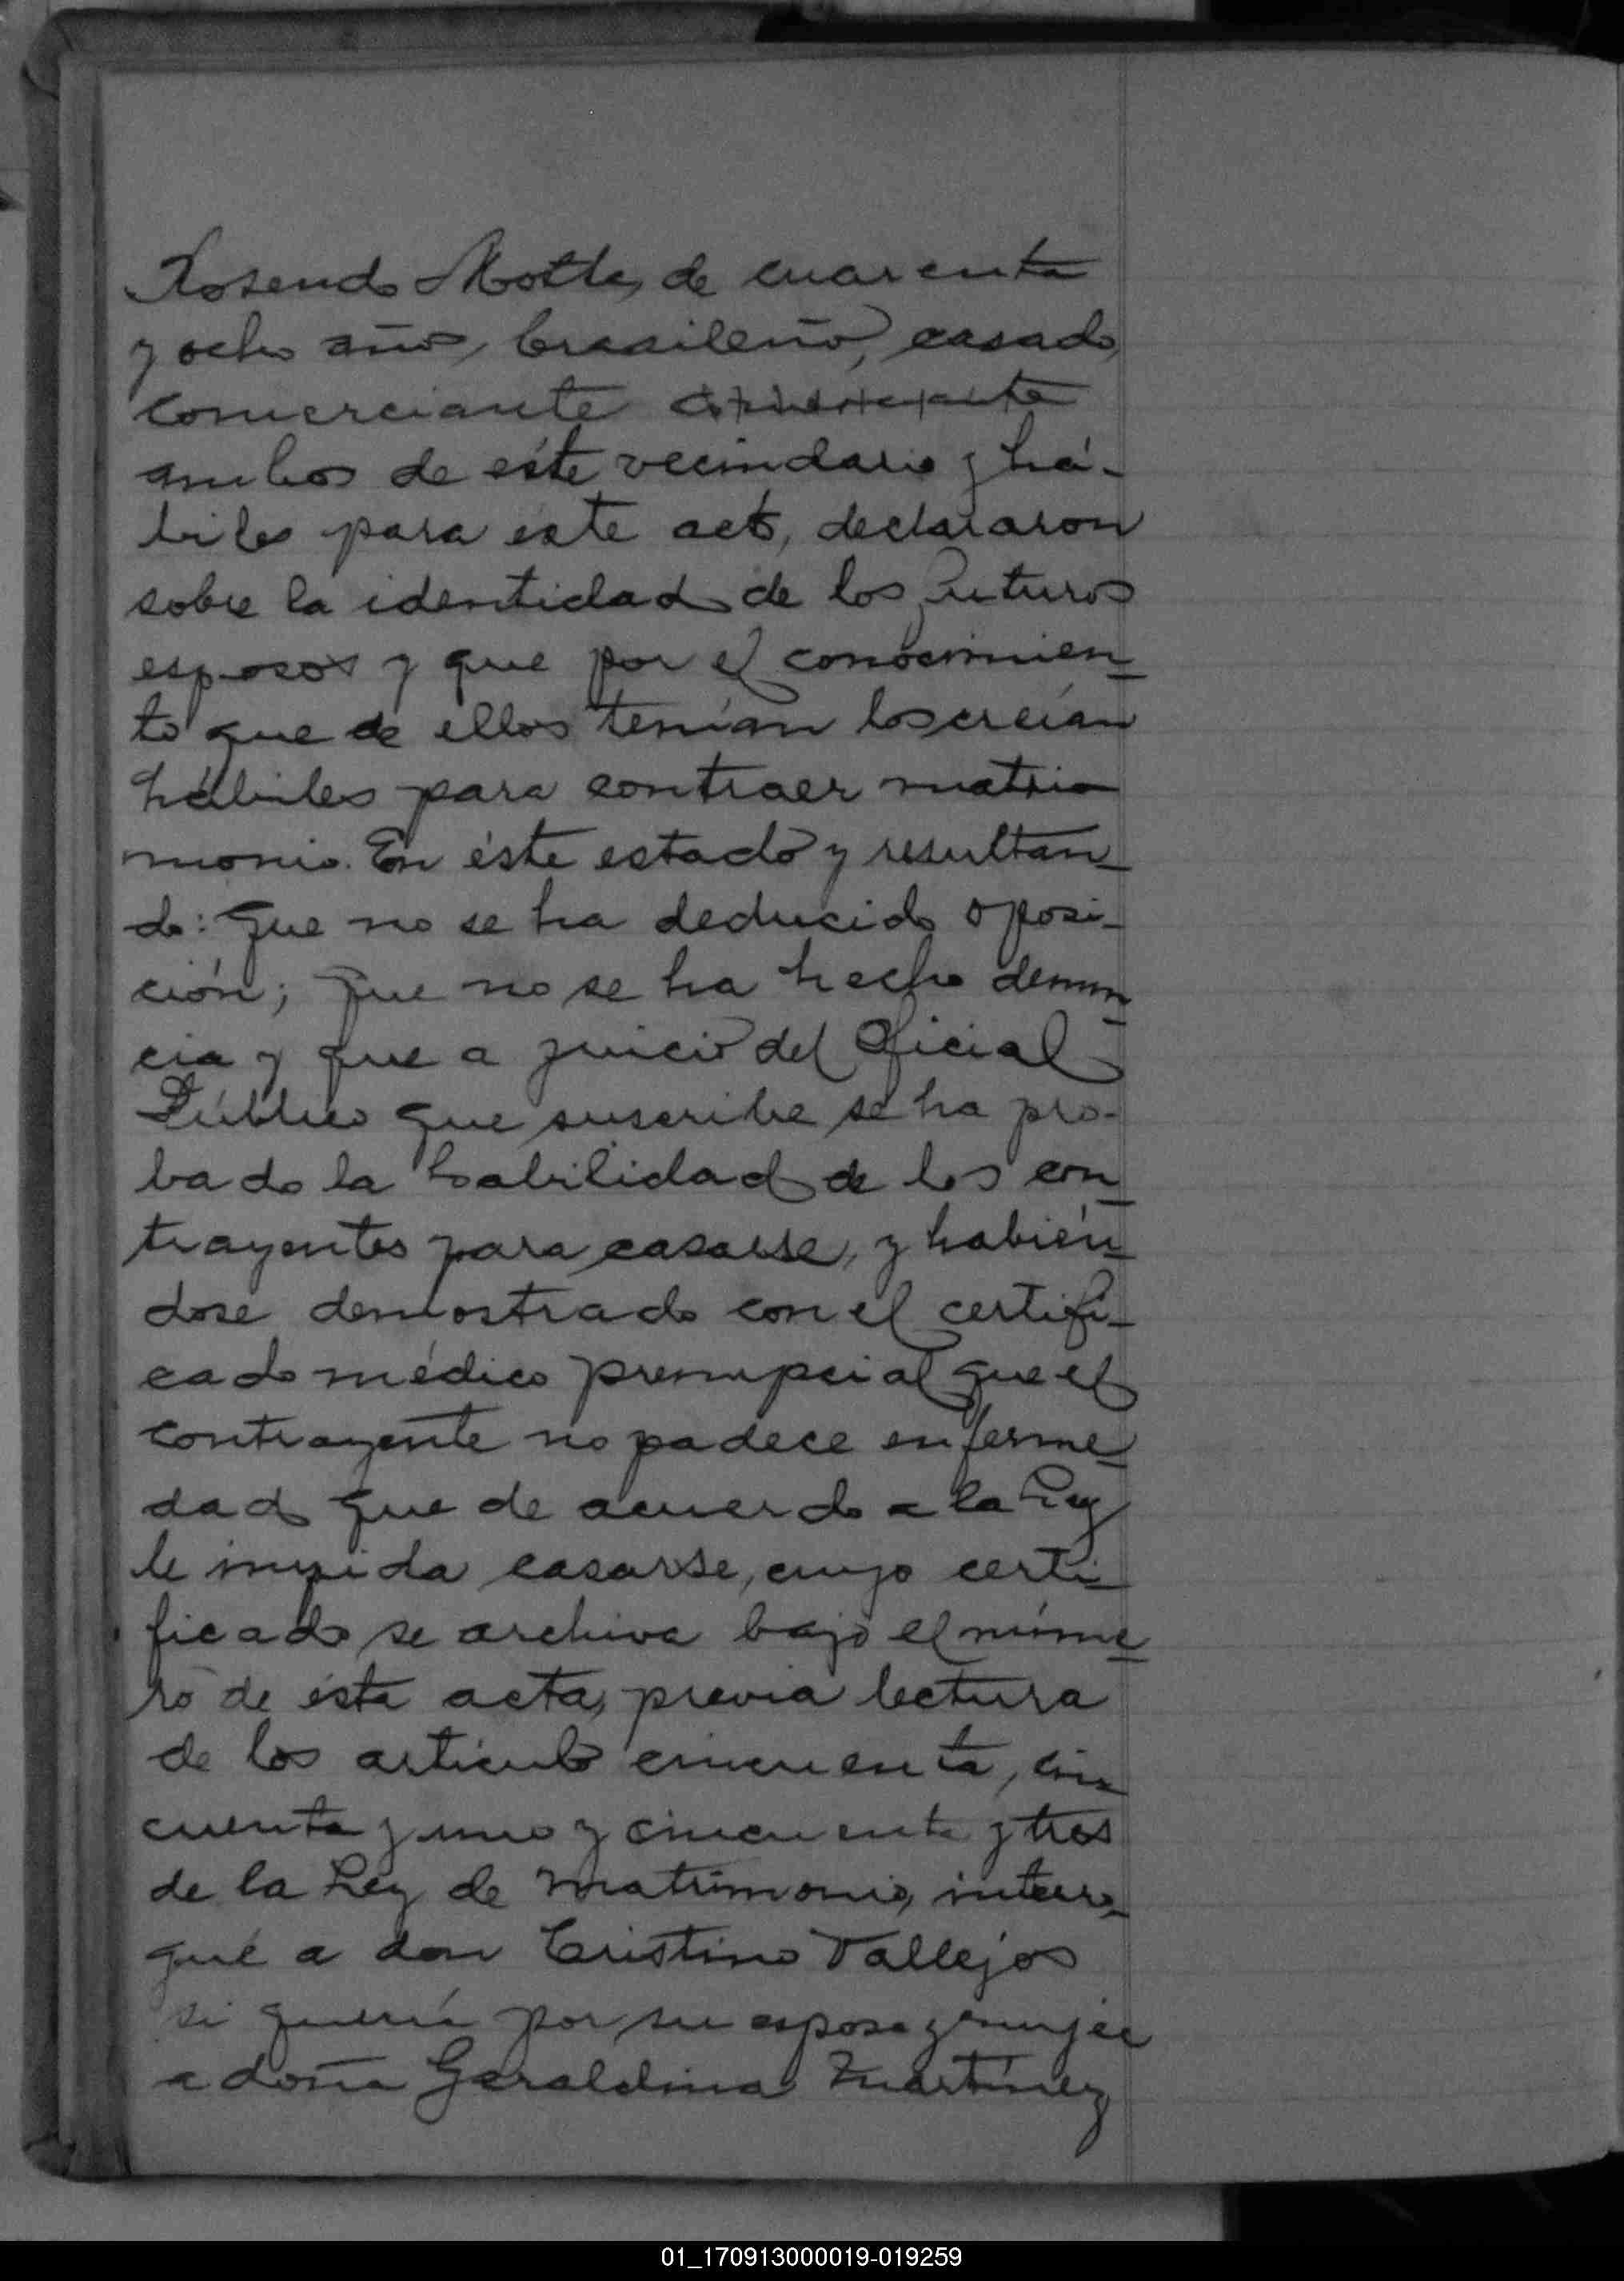 Rosendo Motta, de cuarenta
y ocho años, brasileño, casado,
comerciante
ambos de éste vecindario y há-
biles para éste acto, declararon
sobre la identidad de los futuros
esposos y que por el conocimien-
to que de ellos tenían los creían
hábiles para contraer matri-
monio. En éste estado y resultan-
do: que no se ha deducido oposi-
ción; que no se ha hecho denun-
cia y que a juicio del Oficial
Público que suscribe se ha pro-
bado la habilidad de los con-
trayentes para casarse, y habién-
dose demostrado con el certifi-
cado médico prenupcial que el
contrayente no padece enferme-
dad que de acuerdo a la Ley
le impida casarse, cuyo certi-
ficado se archiva bajo el núme-
ro de ésta acta, previa lectura
de los artículo cincuenta, cin-
cuenta y uno y cincuenta y tres
de la Ley de Matrimonio, interro-
gué a don Cristino Vallejos
si quería por su esposa y mujer
a doña Geraldina Martínez
01_170913000019-019259